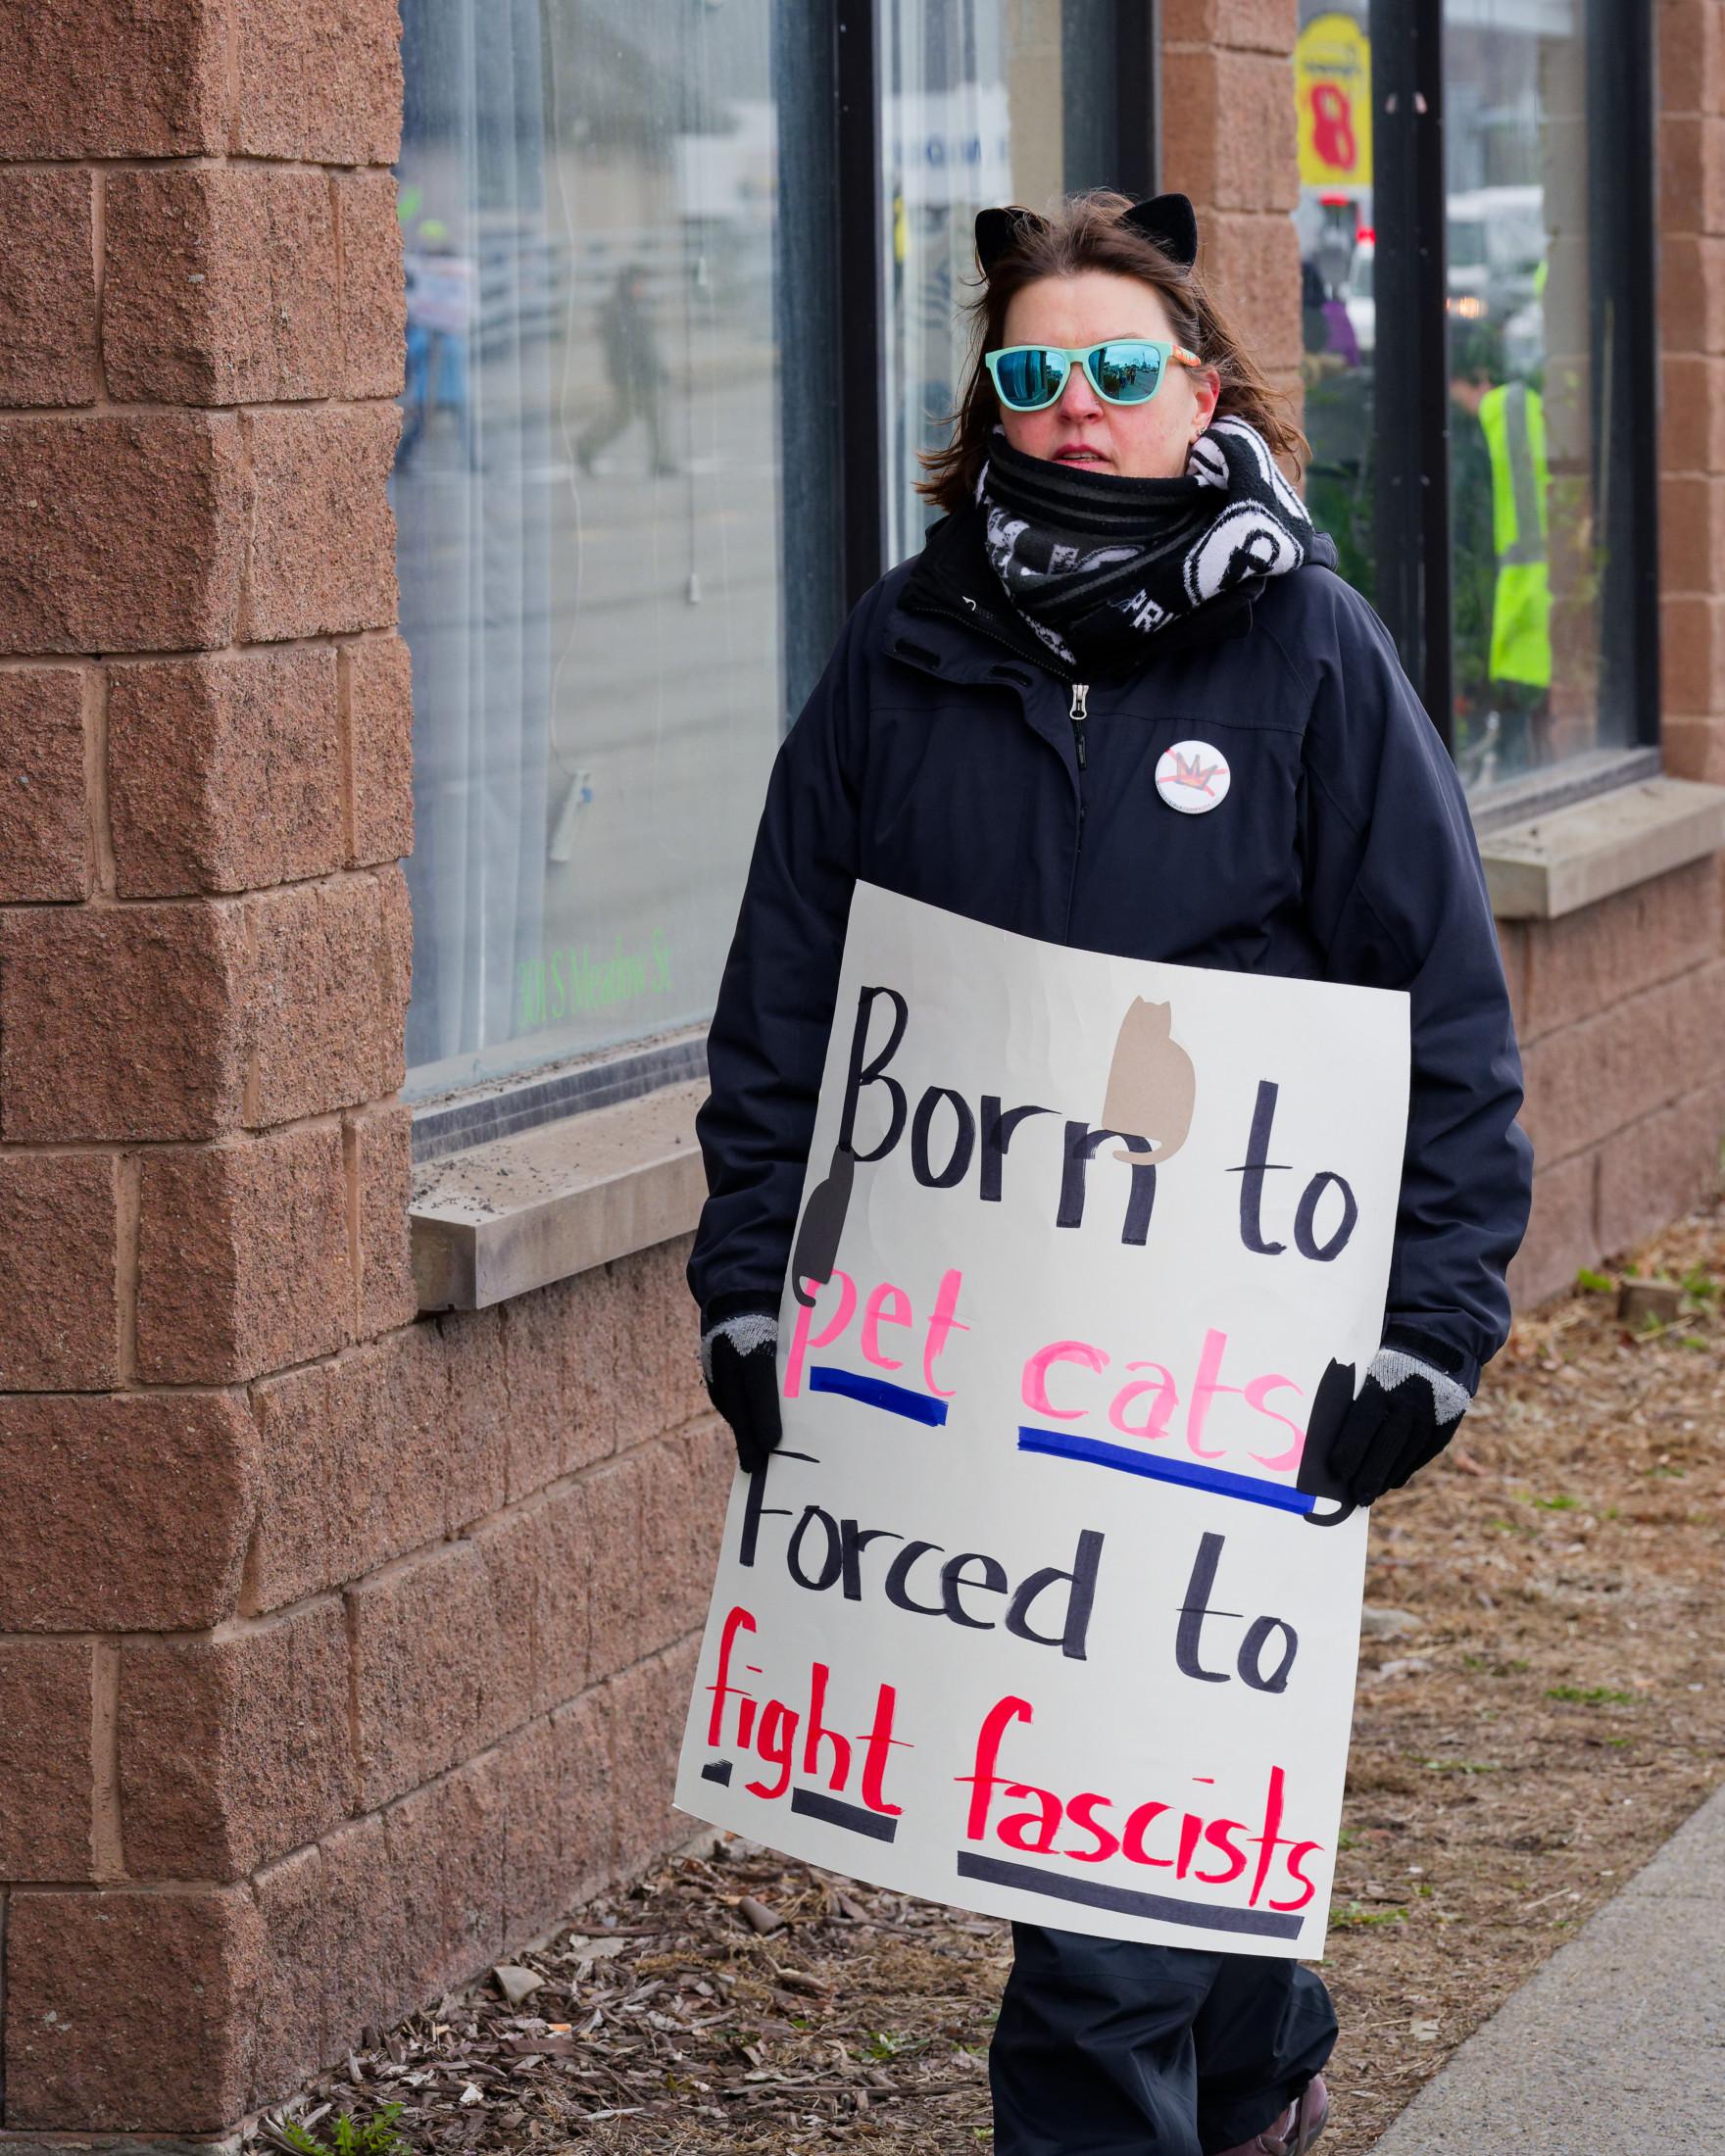 8
PRI
301 S Meadow St
Born to
pet cats
Forced to
fight fascists